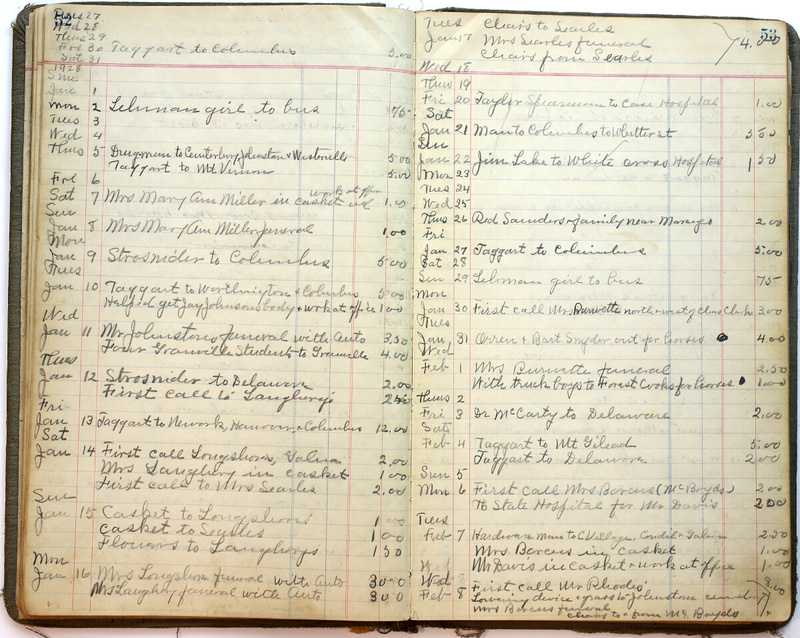 52
Tues 27
Wed 28
Thurs 29
Fri 30 Taggart to Columbus 5.00
Sat 31
1928
Sun
Jan 1
Mon 2 Lehman girl to bus 75
Tues 3
Wed 4
Thurs 5 to Centerburg Johnstown & Westerville 5.00
Taggart to Mt Vernon 5.00
Fri 6
work at office
Sat 7 Mrs Mary Ann Miller in casket 1.00
Sun
Jan 8 Mrs Mary Ann Miller funeral 1.00
Mon
Jan 9 Strosnider to Columbus 5.00
Tues
Jan 10 Taggart to Worthington & Columbus 5.00
Helped get Jay Johnsons body & work at office 1.00
Wed
Jan 11 Mr Johnstons funeral with Auto 3.50
Four Granville Students to Granville 4.00
Thurs
Jan 12 Strosnider to Delaware 2.00
First call to Laughery's
Fri
Jan 13 Taggart to Newark, Hanover & Columbus 12.00
Sat
Jan 14 First call Longshores, Galena 2.00
Mrs Laughery in casket 1.00
First call to Mrs Searles 2.00
Sun
Jan 15 Casket to Longshores 1.00
Casket to Searles 1.00
Flowers to Laugherys 1.50
Mon
Jan 16 Mrs Longshore funeral with Auto 3.00
Mrs Laughery funeral with Auto 3.00
53
Tues Chairs to Searles
Jan 17 Mrs Searles funeral 4.00
Chairs from Searles
Wed 18
Thurs 19
Fri 20 Taylor Spearman to Case Hospital 1.00
Sat
Jan 21 Man to Columbus to Whittier st 5.00
Sun
Jan 22 Jim Lake to White cross Hospital 1.50
Mon 23
Tues 24
Wed 25
Thurs 26 Red Saunders & family near Marengo 2.00
Fri
Jan 27 Taggart to Columbus 5.00
Sat 28
Sun 29 Lehman girl to bus 75
Mon
Jan 30 First call Mrs Burwette north & west of Chas Clarks 3.00
Tues
Jan 31 Orren & Bart Snyder out for horses 4.00
Wed
Feb 1 Mrs Burwette funeral 2.50
With truck boys to Forest Cooks for horses 1.00
Thurs 2
Fri 3 Dr McCarty to Delaware 2.00
Sat
Feb 4 Taggart to Mt Gilead 5.00
Taggart to Delaware 2.00
Sun 5
Mon 6 First call Mrs Borcus (McBoyds) 2.00
To State Hospital for Mr Davis 2.00
Tues
Feb 7 Hardware man to C Village, Condit & Galena 2.50
Mrs Borcus in casket 1.00
Mr Davis in casket & work at office 1.00
Wed
Feb 8 First call Mr Rhodes
Lowering device & grass to Johnstown cemetery
Mrs Borcus funeral
Chairs to & from Mc Boyds